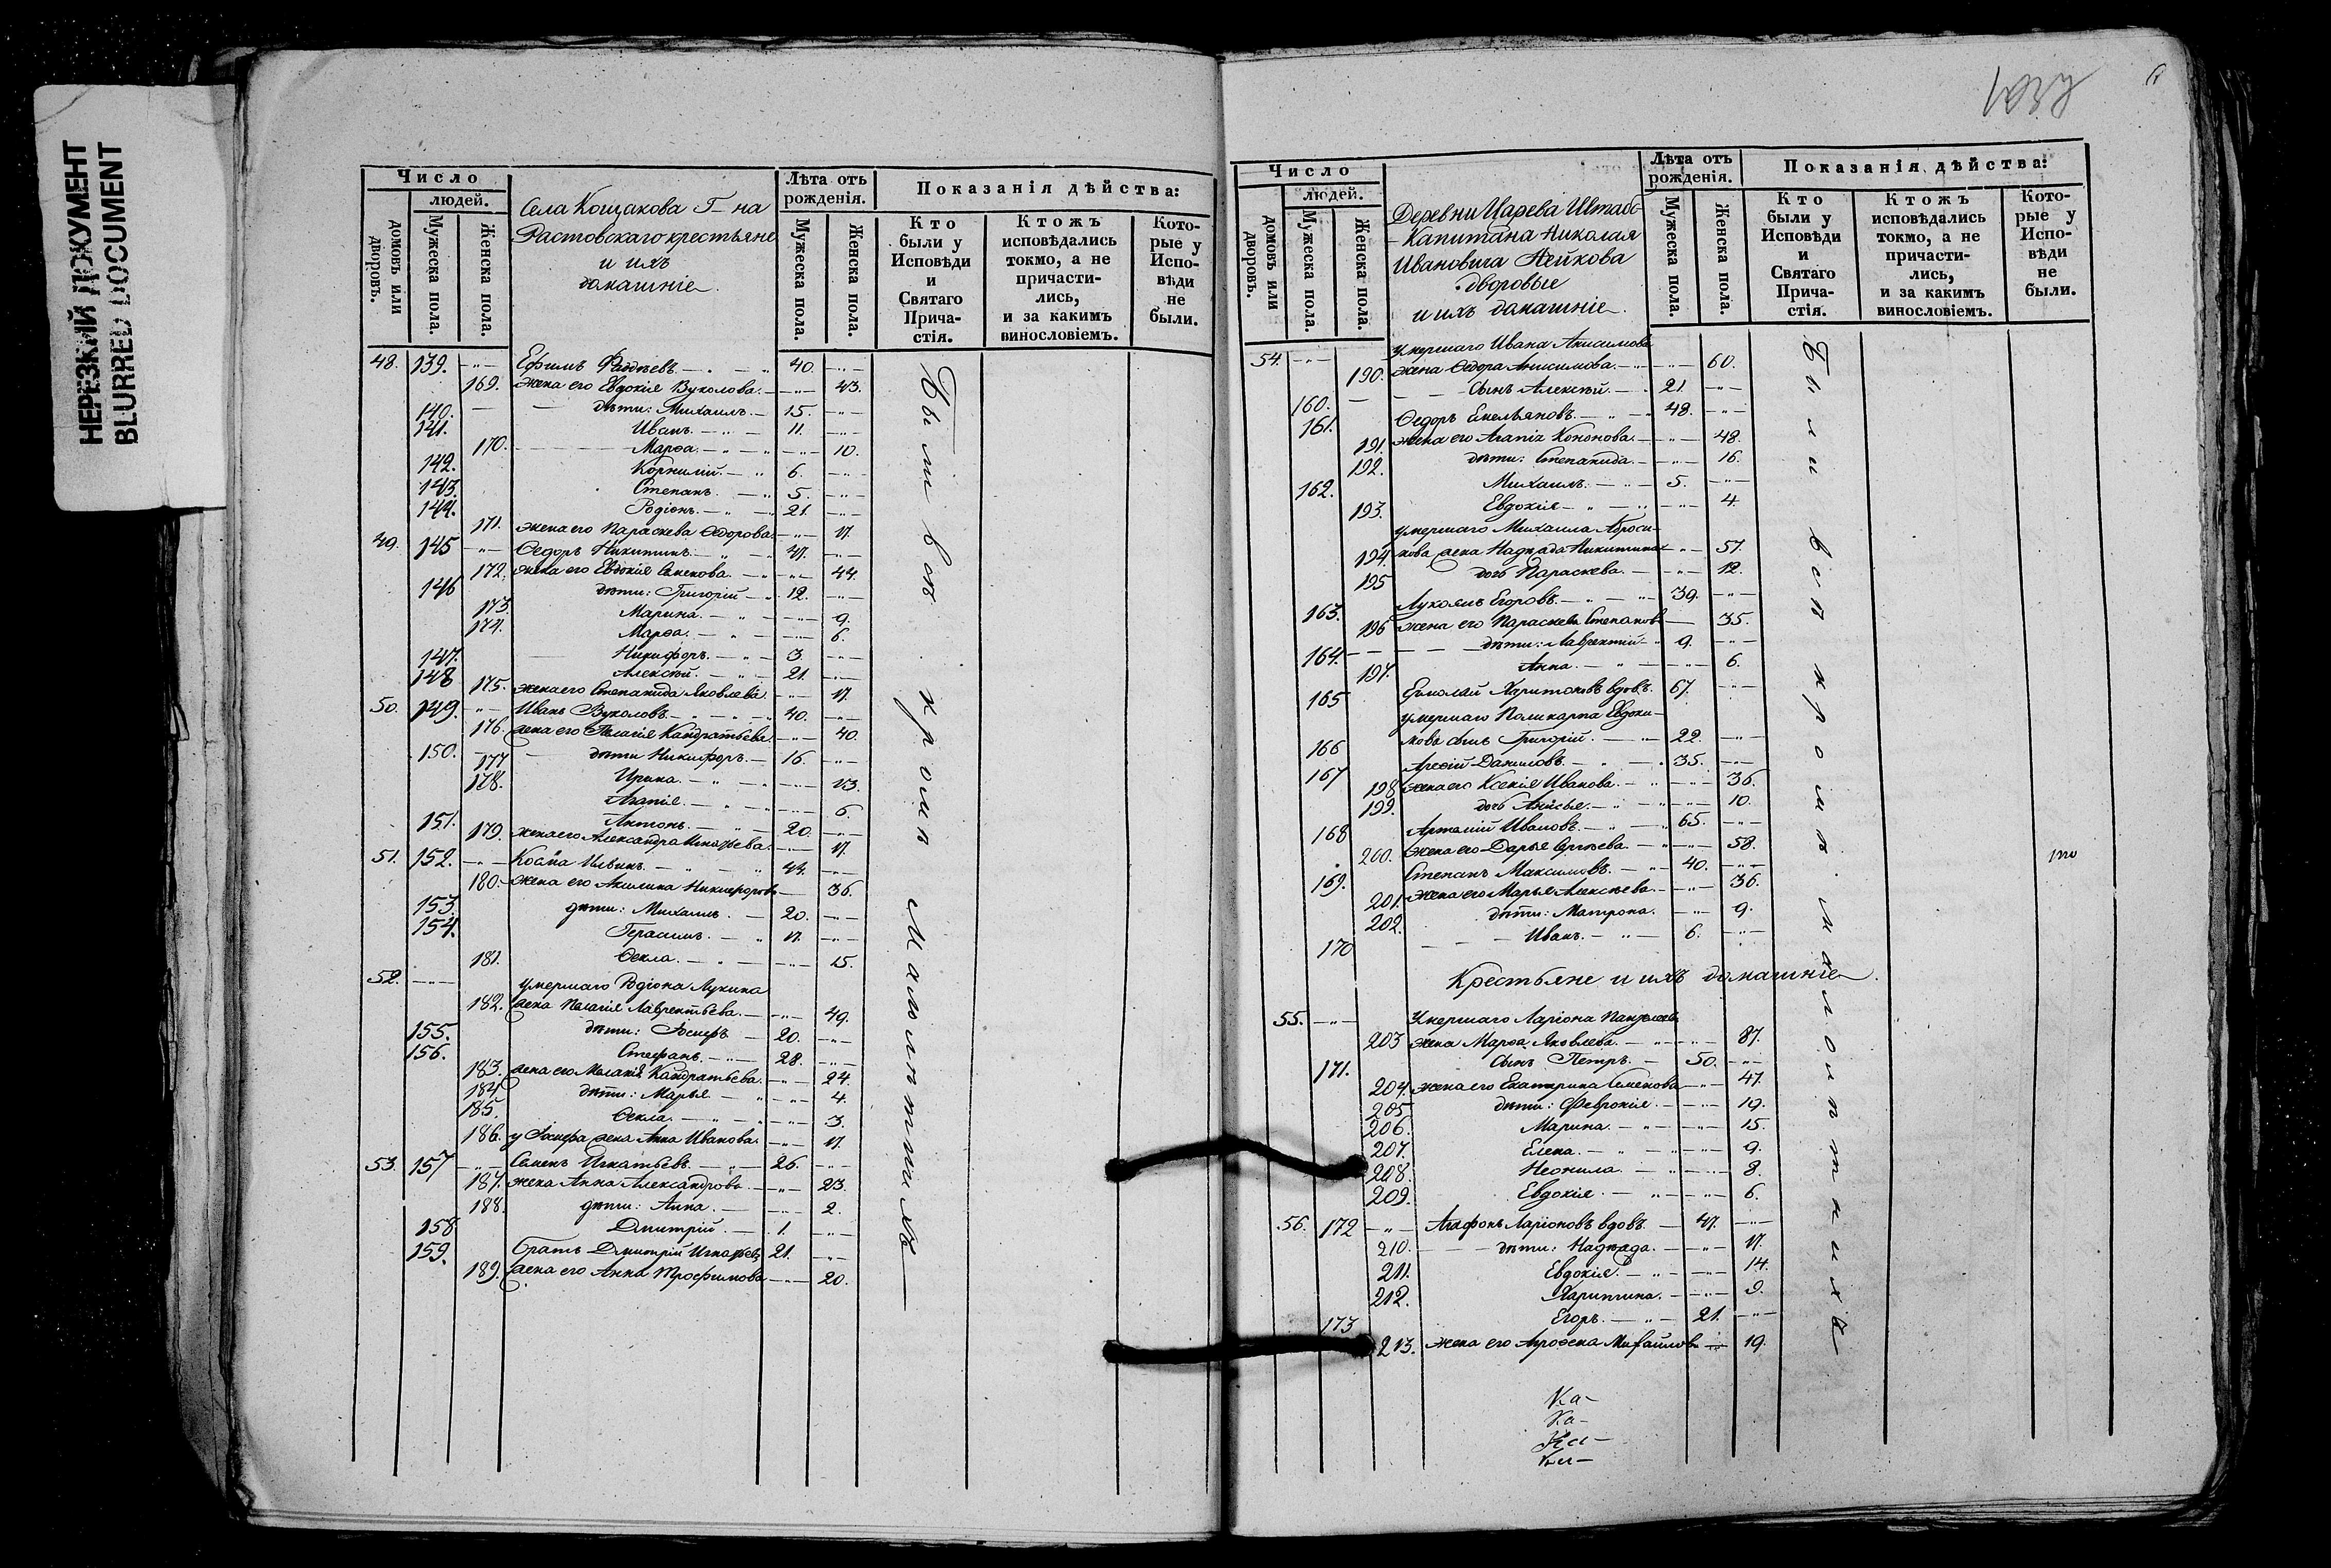 НЕРЕЗКИЙ ДОКУМЕНТ
BLURRED DOCUMENT
Число
людей.
домовъ или дворовъ.
Мужеска пола.
Женска пола.
Села Кощакова Г-на
Растовскаго крестьяне
и ихъ
домашніе
Лѣта отъ рожденія.
Мужеска пола.
Женска пола.
Показанія дѣйства:
Кто были у Исповѣди и Святаго Прича-стія.
Ктожъ исповѣдались токмо, а не причасти-лись, и за какимъ винословіемъ.
Кото-рые у Испо-вѣди не были.
48. 139. Ефимъ Фаддѣевъ 40.
169. жена его Евдокія Вуколова. 43.
140. дѣти: Михаилъ. 15.
141. Иванъ. 11.
170. Марѳа. 10.
142. Корнилій. 6.
143. Степанъ. 5.
144. Родіонъ. 21.
171. жена его Параскева Ѳедорова. 17.
49. 145 Ѳедоръ Никитинъ. 47.
172. жена его Евдокія Семенова. 44.
146 дѣти: Григорій 12.
173. Марина. 9.
174. Марѳа. 6.
147. Никифоръ. 3.
148 Алексѣй. 21.
175. жена его Степанида Яковлева. 17.
50. 149. Иванъ Вуколовъ. 40.
176. жена его Пелагія Кандратьева. 40.
150. дѣти Никифоръ. 16.
177 Ирина. 13.
178. Агапія. 6.
151. Антонъ. 20.
179. жена его Александра Игнатьева. 17.
51. 152. Косма Ильинъ. 44.
180. жена его Акилина Никифорова 36.
153. дѣти: Михаилъ. 20.
154. Герасимъ. 17.
181. Ѳекла. 15.
52. умершаго Родіона Лукина
182. жена Пелагія Лаврентьева. 49.
155. дѣти: Іосифъ 20.
156. Стефанъ. 28.
183. жена его Меланія Кандратьева. 24.
184. дѣти: Марья 4.
185. Ѳекла. 3.
186. у Іосифа жена Анна Иванова. 17.
53. 157 Семенъ Игнатьевъ. 26.
187. жена Анна Александрова 23.
188. дѣти: Анна. 2.
158. Дмитрій. 1.
159. братъ Дмитрій Игнатьевъ 21.
189. жена его Анна Трофимова 20.
Были вси кромѣ малолѣтнихъ
Число
людей.
домовъ или дворовъ.
Мужеска пола.
Женска пола.
Деревни Царева Штабс-
Капитана Николая
Ивановича Нейкова
дворовые
и ихъ домашніе
Лѣта отъ рожденія.
Мужеска пола.
Женска пола.
Показанія дѣйства:
Кто были у Исповѣди и Святаго Прича-стія.
Ктожъ исповѣдались токмо, а не причасти-лись, и за какимъ винословіемъ.
Кото-рые у Испо-вѣди не были.
54. умершаго Ивана Анисимова
190. жена Ѳедора Анисимова. 60.
160. сынъ Алексѣй. 21.
161. Ѳедоръ Емельяновъ. 48.
191. жена его Агапія Кононова. 48.
192. дѣти: Степанида. 16.
162. Михаилъ. 5.
193. Евдокія 4.
умершаго Михаила Аброси-
194. мова жена Надежда Никитина 57.
195 дочь Параскева. 12.
163. Лукоянъ Егоровъ. 39.
196 жена его Параскева Степанова 35.
164. дѣти: Лаврентій 9.
197. Анна. 6.
165 Ермолай Харитоновъ вдовъ. 67.
умершаго Поликарпа Евдоки-
166 мова сынъ Григорій. 22.
167 Арефій Даниловъ. 35.
198 жена его Ксенія Иванова. 36.
199. дочь Анисья. 10.
168 Артамій Ивановъ. 65.
200. жена его Дарья Сергѣева. 58.
169. Степанъ Максимовъ. 40.
201. жена его Марья Алексѣева. 36.
202. дѣти: Матрона. 9.
170 Иванъ. 6.
Крестьяне и ихъ домашніе
55. Умершаго Ларіона
203 жена Марѳа Яковлева. 87.
171. сынъ Петръ. 50.
204. жена его Екатерина Семенова 47.
205. дѣти: Февронія. 19.
206. Марина. 15.
207. Елена. 9.
208. Неонила. 8.
209. Евдокія. 6.
56. 172 Агафонъ Ларіоновъ вдовъ. 47.
210. дѣти: Надежда. 17.
211. Евдокія. 14.
212. Харитина. 9.
173 Егоръ. 21.
213. жена его Аѳросена Михайлова 19.
Были вси кромѣ малолѣтнихъ
Ка-
Ка-
Ка-
Ка-